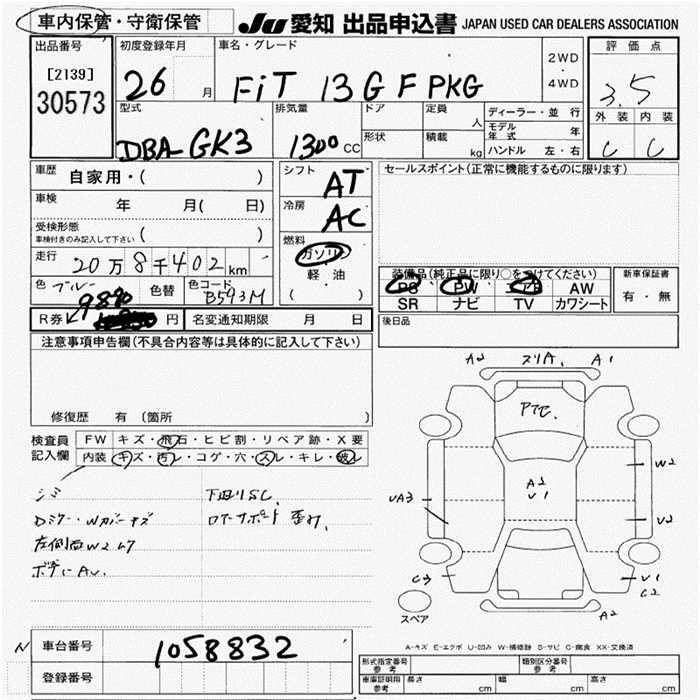 車内保管・守衛保管
JU 愛知 出品申込書 JAPAN USED CAR DEALERS ASSOCIATION
出品番号
[2139]
30573
初度登録年月
26 月
車名・グレード
FiT 13G F PKG
2WD
・
4WD
評価点
3.5
外装 内装
C C
型式
DBA-GK3
排気量
1300 CC
ドア
形状
定員
人
積載
kg
ディーラー・並行
モデル年式 年
ハンドル 左・右
車歴
自家用・( )
車検
年 月( 日)
受検形態
車検付きのみ記入して下さい ( )
走行
20万8千402km
色 ブルー 色替 色コード B593M
シフト
AT
冷房
AC
燃料
ガソリン
軽油
( )
セールスポイント(正常に機能するものに限ります)
装備品(純正品に限り○をつけてください)
PS PW AW
SR ナビ TV カワシート
新車保証書
有・無
後日品
R券 9890 円 名変通知期限 月 日
注意事項申告欄(不具合内容等は具体的に記入して下さい)
修復歴 有(箇所 )
検査員記入欄
FW キズ・飛石・ヒビ割・リペア跡・X要
内装 キズ・汚レ・コゲ・穴・スレ・キレ・破レ
シミ
Dミラー・Wカバーキズ
左側面W2
ボディAU.
下回りSC.
ロアーサポート 歪み.
A2 スリA. A1
アてた.
A2
V1
W2
V2
UA3
C3
V1
C2
A2
スペア
A-キズ E-エクボ U-凹み W-補修跡 S-サビ C-腐食 XX-交換済
N
車台番号
1058832
登録番号
形式指定番号
参考
類別区分番号
参考
車庫証明用
参考
長さ cm 幅 cm 高さ cm